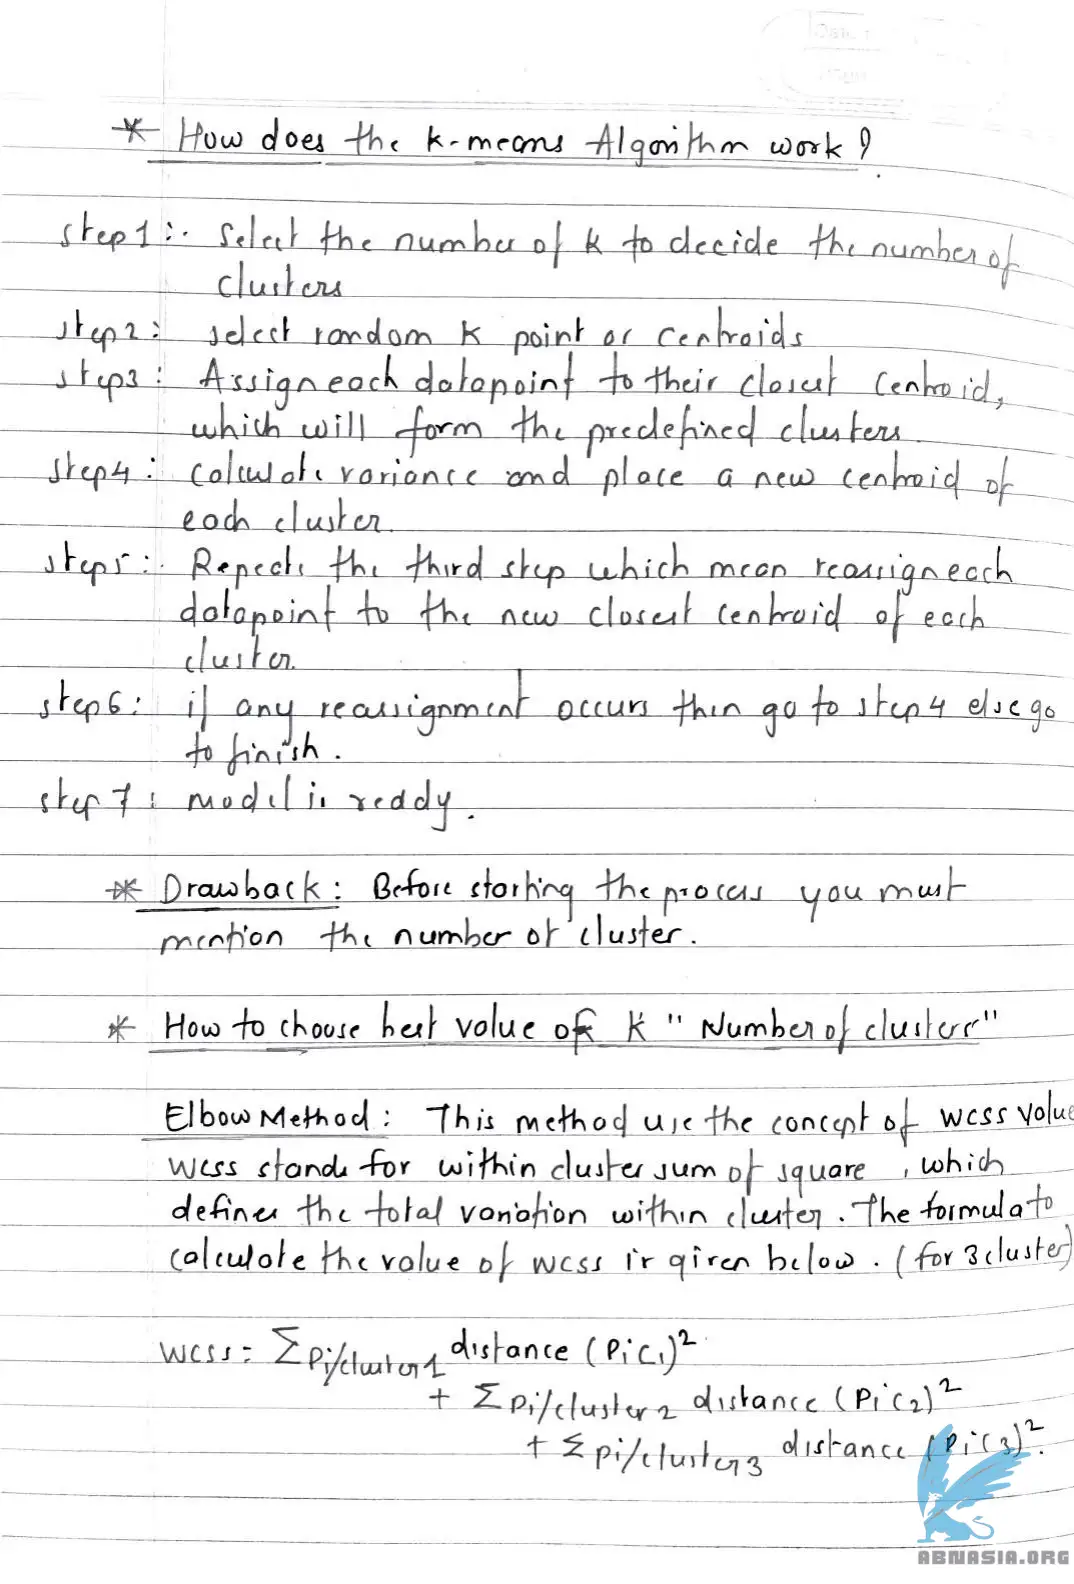 * How does the k-means Algorithm work ?
step1 :- Select the number of k to decide the number of
clusters
step2 : select random K point or centroids
step3 : Assign each datapoint to their closest centroid,
which will form the predefined clusters.
step4 : calculate variance and place a new centroid of
each cluster.
step5 : Repeate the third step which mean reassign each
datapoint to the new closest centroid of each
cluster.
step6 : if any reassignment occurs then go to step4 else go
to finish.
step 7 : model is ready.
* Drawback : Before starting the process you must
mention the number of cluster.
* How to choose best value of K "Number of clusters"
Elbow Method : This method use the concept of WCSS value
WCSS stands for within cluster sum of square , which
defines the total variation within cluster. The formula to
calculate the value of WCSS is given below. (for 3 cluster)
WCSS = Σ Pi/cluster1 distance (Pi C1)²
+ Σ Pi/cluster2 distance (Pi C2)²
+ Σ Pi/cluster3 distance (Pi C3)².
ABNASIA.ORG